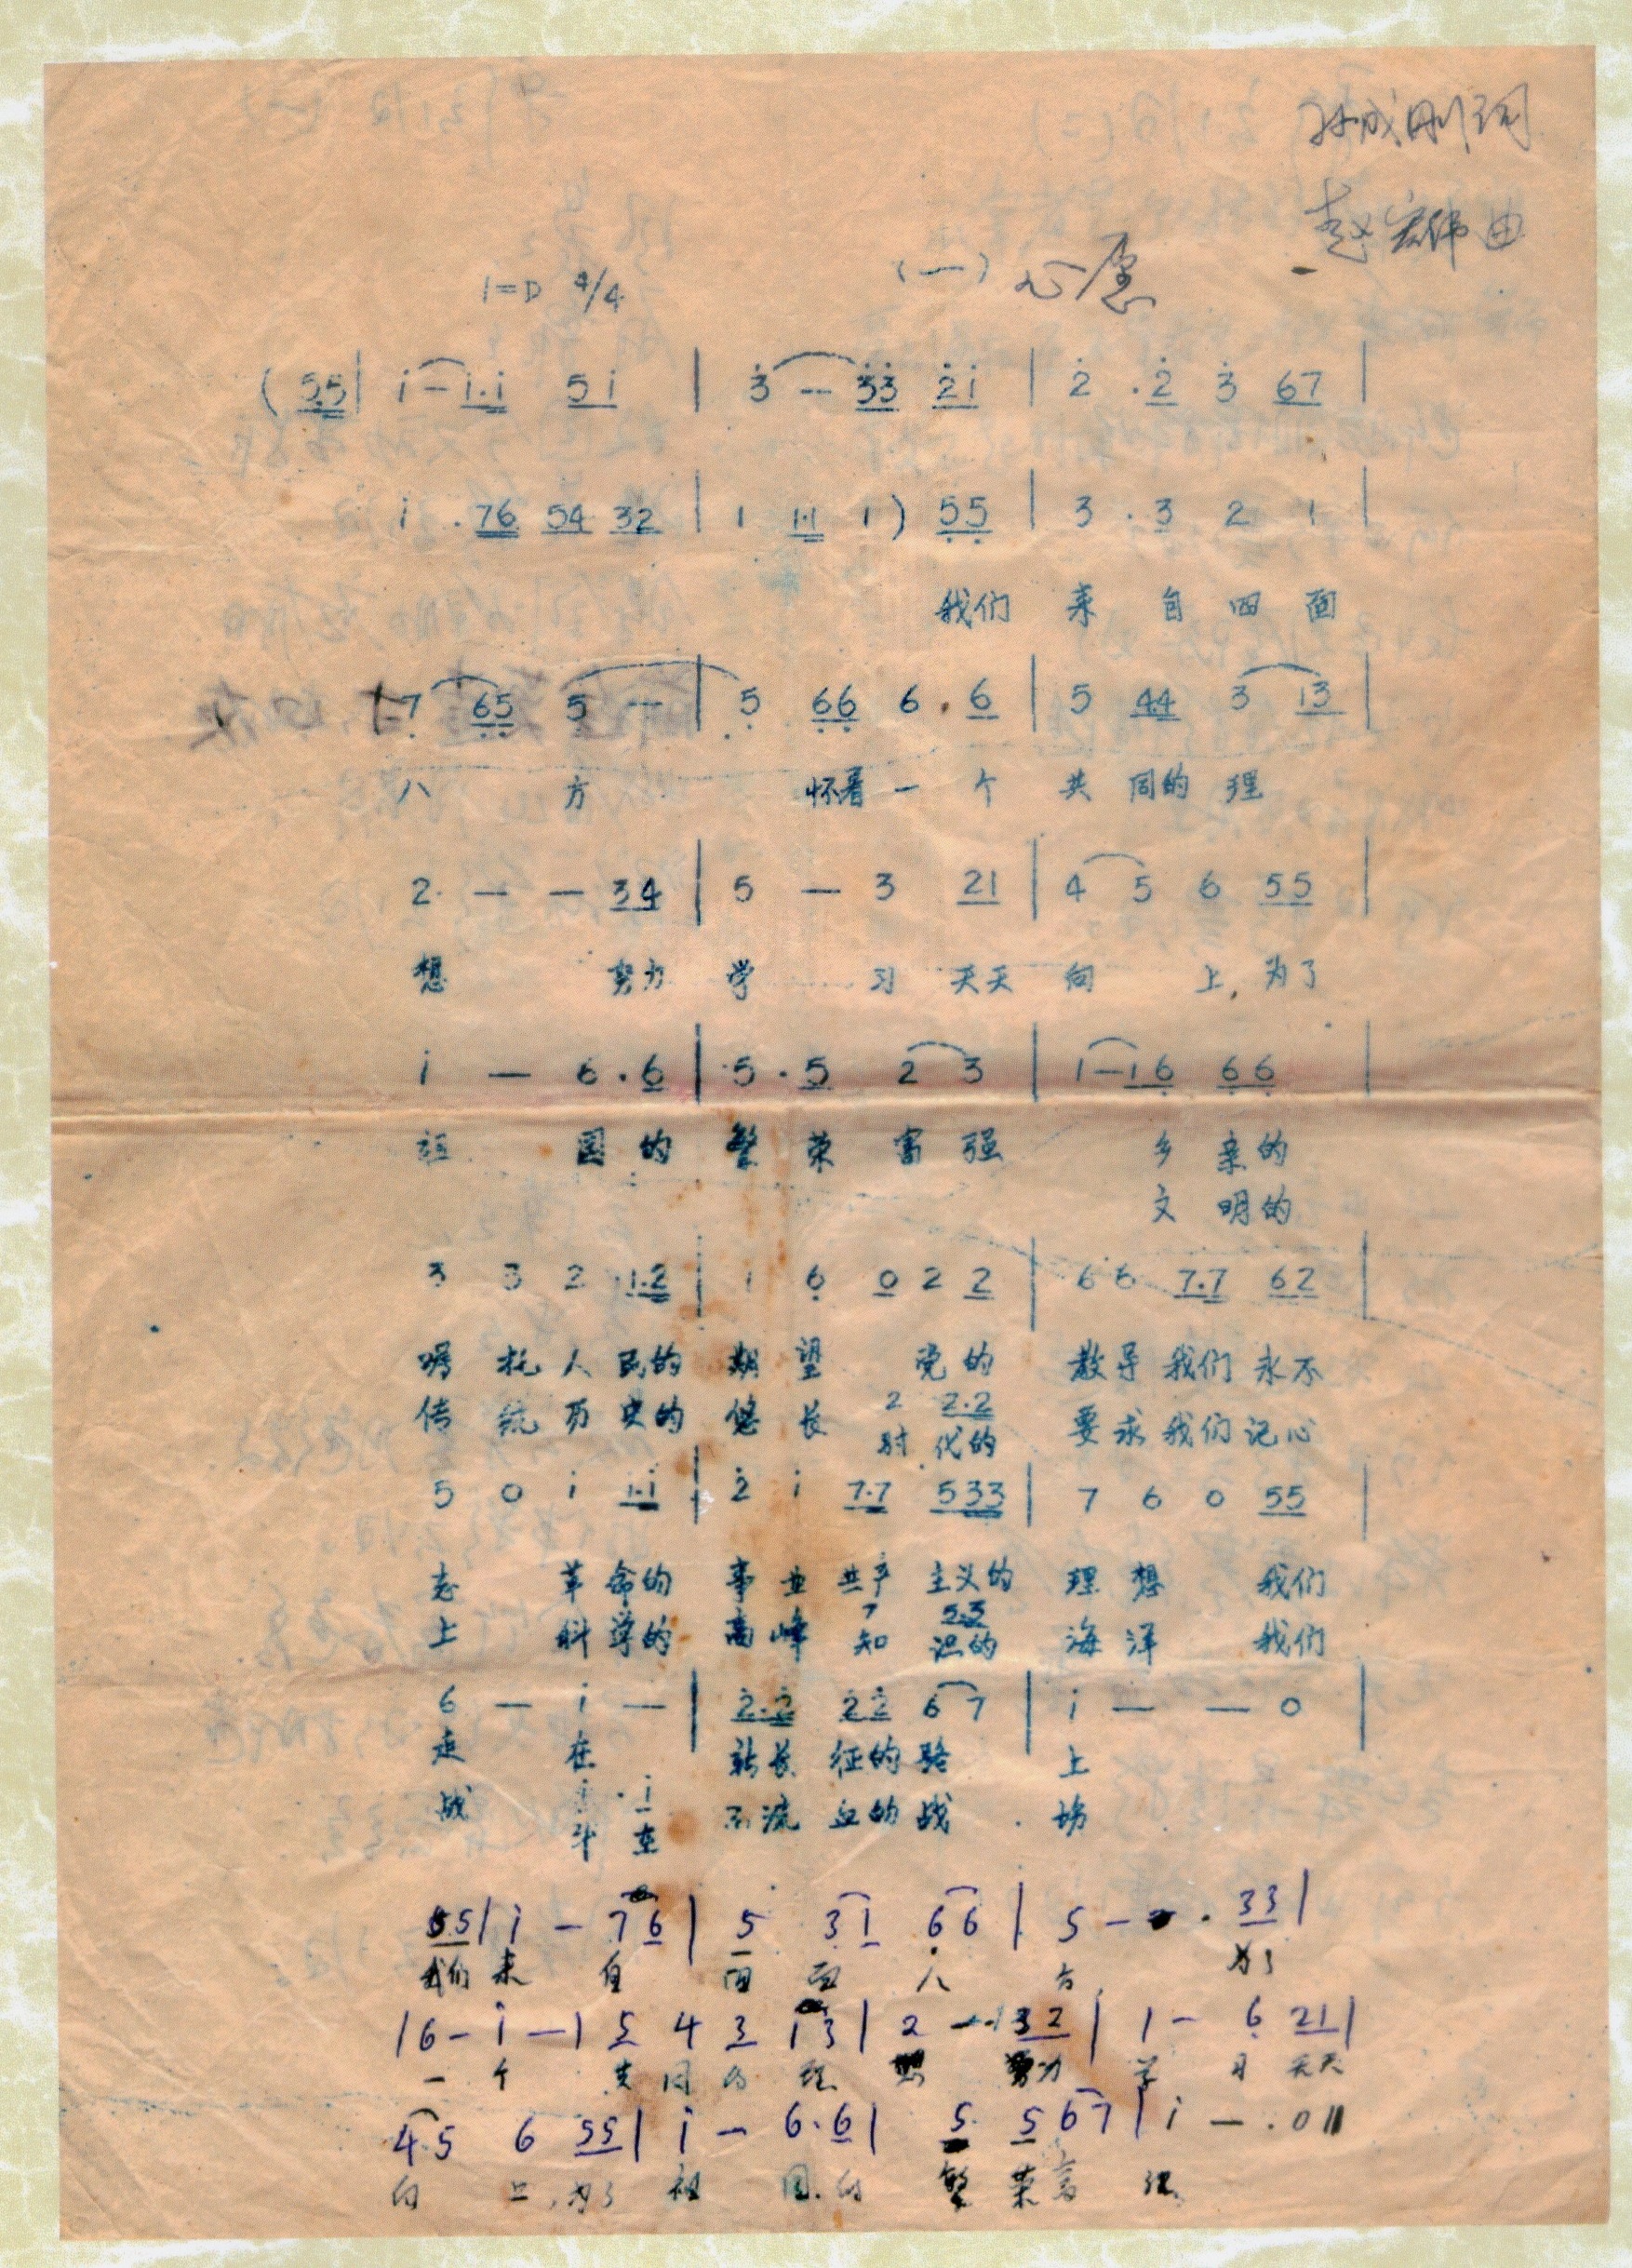 孙成刚词
赵宏伟曲
1=D 4/4 (一) 心愿
( 5 5 | i - i . i 5 i | 3 - 3 3 2 i | 2 . 2 3 6 7 |
i . 7 6 5 4 3 2 | 1 1 . 1 1 ) 5 5 | 3 . 3 2 1 |
我们 来 自 四 面
7 6 5 5 - | 5 6 6 6 . 6 | 5 4 4 3 1 3 |
八 方 怀着 一 个 共 同的 理
2 - - 3 4 | 5 - 3 2 1 | 4 5 6 5 5 |
想 努力 学 习 天天 向 上, 为了
i - 6 . 6 | 5 . 5 2 3 | 1 - 1 6 6 6 |
祖 国 的 繁 荣 富 强 乡 亲的
文 明的
3 3 2 1 . 2 | 1 6 0 2 2 | 6 6 7 . 7 6 2 |
嘱 托 人 民的 期 望 党 的 教导 我们 永不
传 统 历 史的 悠 长 2 2 . 2 要求 我们 记心
时 代的
5 0 i i . i | 2 i 7 . 7 5 3 3 | 7 6 0 5 5 |
志 革 命的 事 业 共产 主义的 理 想 我们
7 5 . 3
上 科 学的 高 峰 知 识的 海 洋 我们
6 - i - | 2 . 2 2 2 6 7 | i - - 0 |
走 在 新长 征的 路 上
i . i
战 斗 在 不流 血的 战 场
5 5 | i - 7 6 | 5 3 1 6 6 | 5 - . 3 3 |
我们 来 自 四 面 八 方 为了
| 6 - i - | 5 4 3 1 3 | 2 - 3 2 | 1 - 6 2 1 |
一 个 共 同 的 理 想 努力 学 习 天天
4 5 6 5 5 | i - 6 . 6 | 5 . 5 6 7 | i - . 0 ‖
向 上, 为了 祖 国 的 繁 荣 富 强